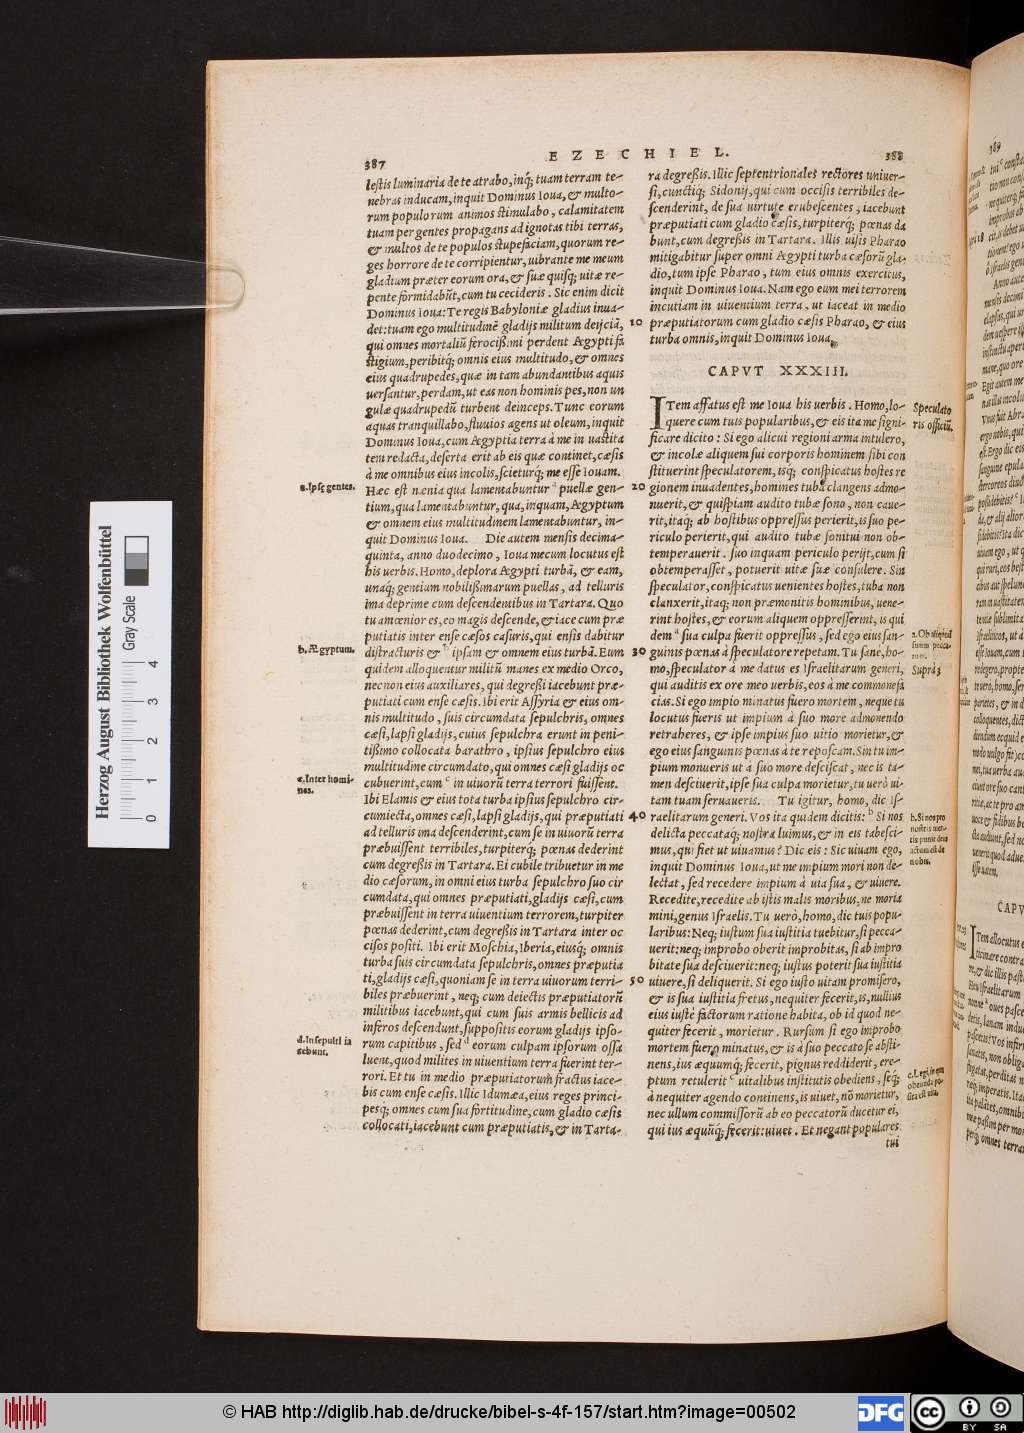 387
EZECHIEL.
388
lestis luminaria de te atrabo, inq́; tuam terram te-
nebras inducam, inquit Dominus Ioua, & multo-
rum populorum animos stimulabo, calamitatem
tuam per gentes propagans ad ignotas tibi terras,
& multos de te populos stupefaciam, quorum re-
ges horrore de te corripientur, uibrante me meum
gladium præter eorum ora, & suæ quisq; uitæ re-
pente formidabūt, cum tu cecideris. Sic enim dicit
Dominus Ioua: Te regis Babyloniæ gladius inua-
det: tuam ego multitudinē gladijs militum deijciā,
qui omnes mortaliū ferocissimi perdent Ægypti fa
stigium, peribitq́; omnis eius multitudo, & omnes
eius quadrupedes, quæ in tam abundantibus aquis
uersantur, perdam, ut eas non hominis pes, non un
gulæ quadrupedū turbent deinceps. Tunc eorum
aquas tranquillabo, fluuios agens ut oleum, inquit
Dominus Ioua, cum Ægyptia terra à me in uastita
tem redacta, deserta erit ab eis quæ continet, cæsis
à me omnibus eius incolis, scieturq́; me esse Iouam.
a. Ipsę gentes.
Hæc est nænia qua lamentabuntur a puellæ gen-
tium, qua lamentabuntur, qua, inquam, Ægyptum
& omnem eius multitudinem lamentabuntur, in-
quit Dominus Ioua. Die autem mensis decima-
quinta, anno duodecimo, Ioua mecum locutus est
his uerbis. Homo, deplora Ægypti turbā, & eam,
unaq́; gentium nobilissimarum puellas, ad telluris
ima deprime cum descendentibus in Tartara. Quo
tu amœnior es, eo magis descende, & iace cum præ
putiatis inter ense cæsos casuris, qui ensis dabitur
b. Ægyptum.
districturis & b ipsam & omnem eius turbā. Eum
quidem alloquentur militū manes ex medio Orco,
necnon eius auxiliares, qui degressi iacebunt præ-
putiati cum ense cæsis. Ibi erit Assyria & eius om-
nis multitudo, suis circumdata sepulchris, omnes
cæsi, lapsi gladijs, cuius sepulchra erunt in peni-
tissimo collocata barathro, ipsius sepulchro eius
multitudine circumdato, qui omnes cæsi gladijs oc
c. Inter homi-
nes.
cubuerint, cum c in uiuorū terra terrori fuissent.
Ibi Elamis & eius tota turba ipsius sepulchro cir-
cumiecta, omnes cæsi, lapsi gladijs, qui præputiati
ad telluris ima descenderint, cum se in uiuorū terra
præbuissent terribiles, turpiterq́; pœnas dederint
cum degressis in Tartara. Ei cubile tribuetur in me
dio cæsorum, in omni eius turba sepulchro suo cir
cumdata, qui omnes præputiati, gladijs cæsi, cum
præbuissent in terra uiuentium terrorem, turpiter
pœnas dederint, cum degressis in Tartara inter oc
cisos positi. Ibi erit Moschia, Iberia, eiusq́; omnis
turba suis circumdata sepulchris, omnes præputia
ti, gladijs cæsi, quoniam se in terra uiuorum terri-
biles præbuerint, neq; cum deiectis præputiatorū
militibus iacebunt, qui cum suis armis bellicis ad
inferos descendunt, suppositis eorum gladijs ipso-
d. Insepulti ia
cebunt.
rum capitibus, sed d eorum culpam ipsorum ossa
luent, quod milites in uiuentium terra fuerint ter-
rori. Et tu in medio præputiatorum fractus iace-
bis cum ense cæsis. Illic Idumæa, eius reges princi-
pesq́; omnes cum sua fortitudine, cum gladio cæsis
collocati, iacebunt cum præputiatis, & in Tarta-
ra degressis. Illic septentrionales rectores uniuer-
si, cunctiq́; Sidonij, qui cum occisis terribiles de-
scenderint, de sua uirtute erubescentes, iacebunt
præputiati cum gladio cæsis, turpiterq́; pœnas da
bunt, cum degressis in Tartara. Illis uisis Pharao
mitigabitur super omni Ægypti turba cæsorū gla-
dio, tum ipse Pharao, tum eius omnis exercitus,
inquit Dominus Ioua. Nam ego eum mei terrorem
incutiam in uiuentium terra, ut iaceat in medio
10 præputiatorum cum gladio cæsis Pharao, & eius
turba omnis, inquit Dominus Ioua.
CAPVT XXXIII.
ITem affatus est me Ioua his uerbis. Homo, lo-
Speculato
ris officiū.
quere cum tuis popularibus, & eis ita me signi-
ficare dicito: Si ego alicui regioni arma intulero,
& incolæ aliquem sui corporis hominem sibi con
stituerint speculatorem, isq́; conspicatus hostes re
20 gionem inuadentes, homines tuba clangens admo-
nuerit, & quispiam audito tubæ sono, non caue-
rit, itaq́; ab hostibus oppressus perierit, is suo pe-
riculo perierit, qui audito tubæ sonitu non ob-
temperauerit. suo inquam periculo perijt, cum si
obtemperasset, potuerit uitæ suæ consulere. Sin
speculator, conspicatus uenientes hostes, tuba non
clanxerit, itaq; non præmonitis hominibus, uene-
rint hostes, & eorum aliquem oppresserint, is qui
dem a sua culpa fuerit oppressus, sed ego eius san-
30 guinis pœnas à speculatore repetam. Tu sanè, ho-
mo, speculator à me datus es Israelitarum generi,
Suprà 3
qui auditis ex ore meo uerbis, eos à me commonefa
cias. Si ego impio minatus fuero mortem, neque tu
locutus fueris ut impium à suo more admonendo
retraheres, & ipse impius suo uitio morietur, &
ego eius sanguinis pœnas à te reposcam. Sin tu im-
pium monueris ut à suo more desciscat, nec is ta-
men desciuerit, ipse sua culpa morietur, tu uerò ui-
tam tuam seruaueris. Tu igitur, homo, dic Is-
40 raelitarum generi. Vos ita quidem dicitis: b Si nos
b. Si nos pro
nostris mer-
tis punit deus
actum est de
nobis.
delicta peccataq́; nostra luimus, & in eis tabesci-
mus, qui fiet ut uiuamus? Dic eis: Sic uiuam ego,
inquit Dominus Ioua, ut me impium mori non de-
lectat, sed recedere impium à uia sua, & uiuere.
Recedite, recedite ab istis malis moribus, ne moria
mini, genus Israelis. Tu uerò, homo, dic tuis popu-
laribus: Neq; iustum sua iustitia tuebitur, si pecca-
uerit: neq; improbo oberit improbitas, si ab impro
bitate sua desciuerit: neq; iustus poterit sua iustitia
50 uiuere, si deliquerit. Si ego iusto uitam promisero,
& is sua iustitia fretus, nequiter fecerit, is, nullius
eius iustè factorum ratione habita, ob id quod ne-
quiter fecerit, morietur. Rursum si ego improbo
mortem fuero minatus, & is à suo peccato se absti-
nens, ius æquumq́; fecerit, pignus reddiderit, ere-
ptum retulerit c uitalibus institutis obediens, seq́;
à nequiter agendo continens, is uiuet, nō morietur,
nec ullum commissorū ab eo peccatorū ducetur ei,
qui ius æquūq́; fecerit: uiuet. Et negant populares
tui
389
Herzog August Bibliothek Wolfenbüttel
Gray Scale
0 1 2 3 4
© HAB http://diglib.hab.de/drucke/bibel-s-4f-157/start.htm?image=00502
DFG
cc
BY SA